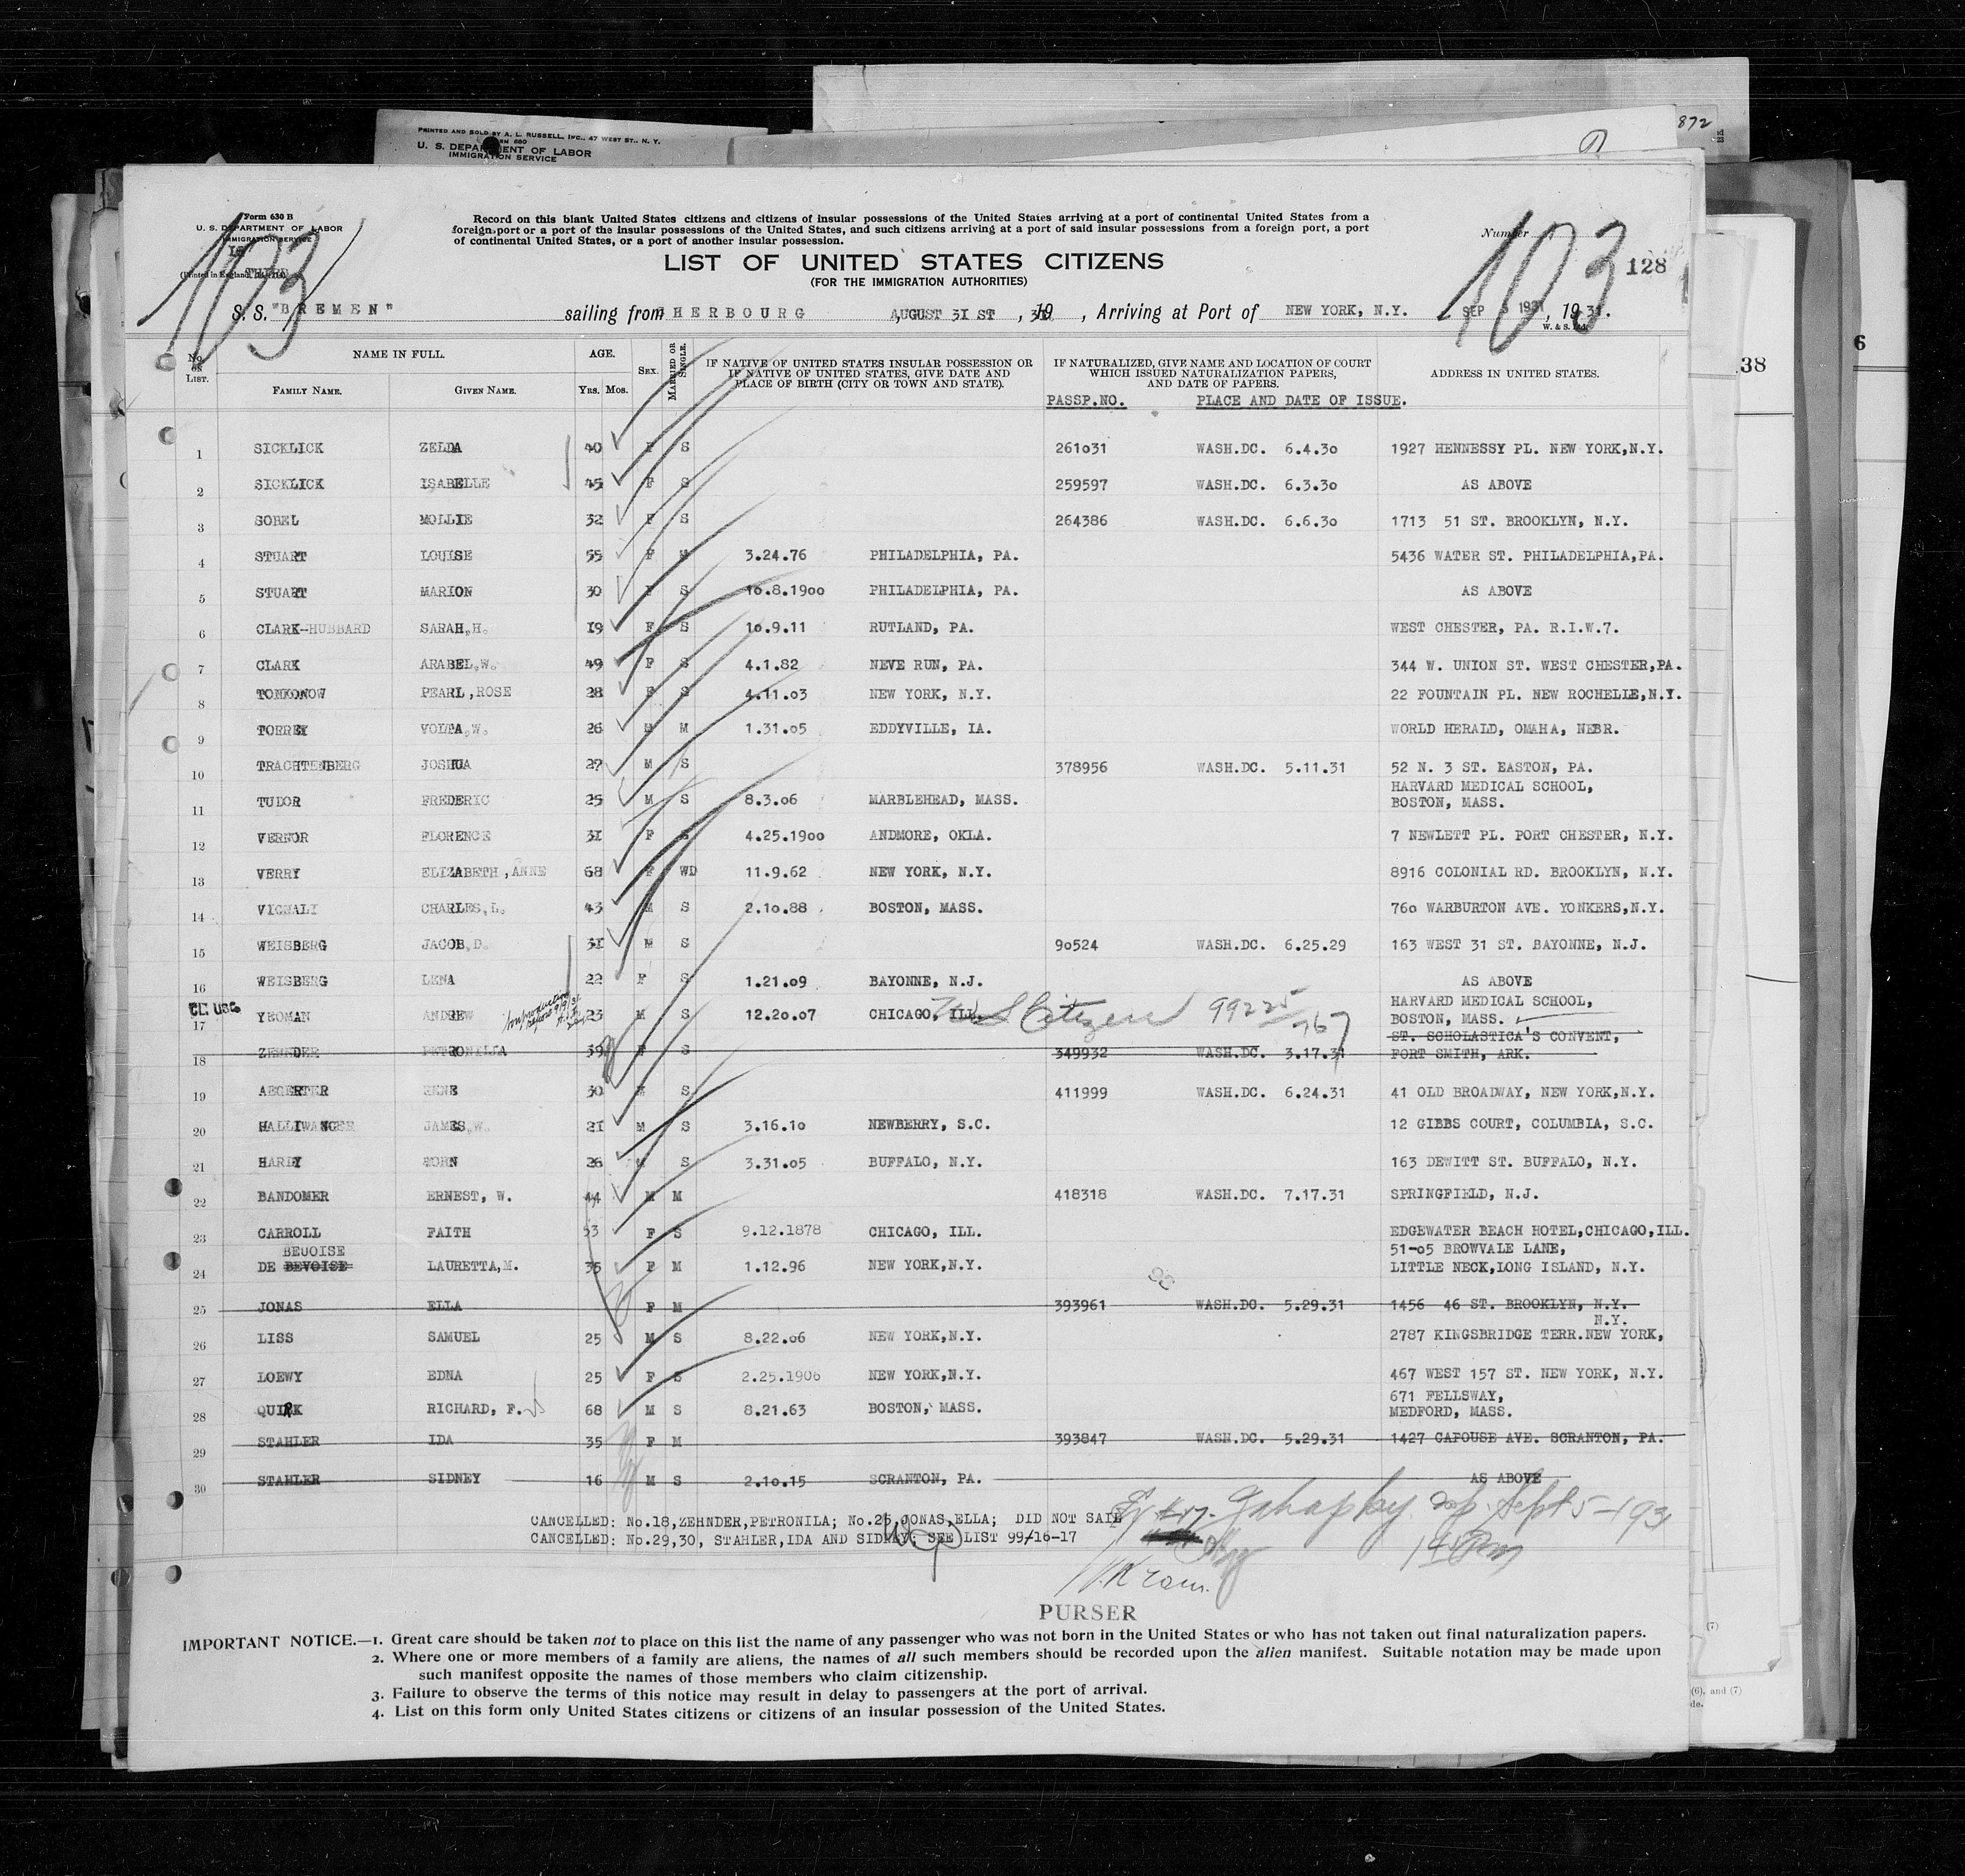 872
PRINTED AND SOLD BY A. L. RUSSELL, INC., 47 WEST ST., N. Y.
U. S. DEPARTMENT OF LABOR
IMMIGRATION SERVICE
Form 630 B
U. S. DEPARTMENT OF LABOR
IMMIGRATION SERVICE
THIRD
103
Record on this blank United States citizens and citizens of insular possessions of the United States arriving at a port of continental United States from a
foreign port or a port of the insular possessions of the United States, and such citizens arriving at a port of said insular possessions from a foreign port, a port
of continental United States, or a port of another insular possession.
Number
103
128
LIST OF UNITED STATES CITIZENS
(FOR THE IMMIGRATION AUTHORITIES)
S. S. "BREMEN" sailing from CHERBOURG, AUGUST 31 ST, 1931, Arriving at Port of NEW YORK, N.Y. SEP 5 1931, 1931.
W. & S. Ltd.
No. on LIST. NAME IN FULL. FAMILY NAME. GIVEN NAME. AGE. Yrs. Mos. SEX. MARRIED OR SINGLE. IF NATIVE OF UNITED STATES INSULAR POSSESSION OR IF NATIVE OF UNITED STATES, GIVE DATE AND PLACE OF BIRTH (CITY OR TOWN AND STATE). IF NATURALIZED, GIVE NAME AND LOCATION OF COURT WHICH ISSUED NATURALIZATION PAPERS, AND DATE OF PAPERS. ADDRESS IN UNITED STATES.
PASSP.NO. PLACE AND DATE OF ISSUE.
1 SICKLICK ZELDA 40 F S 261031 WASH.DC. 6.4.30 1927 HENNESSY PL. NEW YORK,N.Y.
2 SICKLICK ISABELLE 45 F S 259597 WASH.DC. 6.3.30 AS ABOVE
3 SOBEL MOLLIE 32 F S 264386 WASH.DC. 6.6.30 1713 51 ST. BROOKLYN, N.Y.
4 STUART LOUISE 55 F M 3.24.76 PHILADELPHIA, PA. 5436 WATER ST. PHILADELPHIA,PA.
5 STUART MARION 30 F S 10.8.1900 PHILADELPHIA, PA. AS ABOVE
6 CLARK-HUBBARD SARAH,H. 19 F S 10.9.11 RUTLAND, PA. WEST CHESTER, PA. R.I.W.7.
7 CLARK ARABEL,W. 49 F S 4.1.82 NEVE RUN, PA. 344 W. UNION ST. WEST CHESTER,PA.
8 TOMKONOW PEARL,ROSE 28 F S 4.11.03 NEW YORK, N.Y. 22 FOUNTAIN PL. NEW ROCHELLE,N.Y.
9 TORREY VOLTA,W. 26 M M 1.31.05 EDDYVILLE, IA. WORLD HERALD, OMAHA, NEBR.
10 TRACHTENBERG JOSHUA 27 M S 378956 WASH.DC. 5.11.31 52 N. 3 ST. EASTON, PA.
11 TUDOR FREDERIC 25 M S 8.3.06 MARBLEHEAD, MASS. HARVARD MEDICAL SCHOOL, BOSTON, MASS.
12 VERNOR FLORENCE 31 F S 4.25.1900 ANDMORE, OKLA. 7 NEWLETT PL. PORT CHESTER, N.Y.
13 VERRY ELIZABETH,ANNE 68 F WD 11.9.62 NEW YORK, N.Y. 8916 COLONIAL RD. BROOKLYN, N.Y.
14 VIGNALI CHARLES,L. 43 M S 2.10.88 BOSTON, MASS. 760 WARBURTON AVE. YONKERS,N.Y.
15 WEISBERG JACOB,D. 31 M S 90524 WASH.DC. 6.25.29 163 WEST 31 ST. BAYONNE, N.J.
16 WEISBERG LENA 22 F S 1.21.09 BAYONNE, N.J. AS ABOVE
17 YEOMAN ANDREW 23 M S 12.20.07 CHICAGO, ILL. US Citizen 99225/767 HARVARD MEDICAL SCHOOL, BOSTON, MASS.
18 ZEHNDER PETRONILIA 39 F S 349932 WASH.DC. 3.17.31 ST. SCHOLASTICA'S CONVENT, FORT SMITH, ARK.
19 AEGERTER RENE 30 M S 411999 WASH.DC. 6.24.31 41 OLD BROADWAY, NEW YORK,N.Y.
20 HALLIWANGER JAMES,W. 21 M S 3.16.10 NEWBERRY, S.C. 12 GIBBS COURT, COLUMBIA, S.C.
21 HARDY 26 M S 3.31.05 BUFFALO, N.Y. 163 DEWITT ST. BUFFALO, N.Y.
22 BANDOMER ERNEST, W. 44 M M 418318 WASH.DC. 7.17.31 SPRINGFIELD, N.J.
23 CARROLL FAITH 53 F S 9.12.1878 CHICAGO, ILL. EDGEWATER BEACH HOTEL,CHICAGO,ILL.
BEUOISE
24 DE BEVOISE LAURETTA,M. 35 F M 1.12.96 NEW YORK,N.Y. 51-05 BROWVALE LANE, LITTLE NECK,LONG ISLAND, N.Y.
25 JONAS ELLA F M 393961 WASH.DC. 5.29.31 1456 46 ST. BROOKLYN, N.Y.
26 LISS SAMUEL 25 M S 8.22.06 NEW YORK,N.Y. 2787 KINGSBRIDGE TERR.NEW YORK, N.Y.
27 LOEWY EDNA 25 F S 2.25.1906 NEW YORK,N.Y. 467 WEST 157 ST. NEW YORK, N.Y.
28 QUIRK RICHARD, F. 68 M S 8.21.63 BOSTON, MASS. 671 FELLSWAY, MEDFORD, MASS.
29 STAHLER IDA 35 F M 393847 WASH.DC. 5.29.31 1427 CAPOUSE AVE. SCRANTON, PA.
30 STAHLER SIDNEY 16 M S 2.10.15 SCRANTON, PA. AS ABOVE
CANCELLED: No.18,ZEHNDER,PETRONILA; No.25,JONAS,ELLA; DID NOT SAIL
CANCELLED: No.29,30, STAHLER,IDA AND SIDNEY; SEE LIST 99/16-17
PURSER
IMPORTANT NOTICE.—1. Great care should be taken not to place on this list the name of any passenger who was not born in the United States or who has not taken out final naturalization papers.
2. Where one or more members of a family are aliens, the names of all such members should be recorded upon the alien manifest. Suitable notation may be made upon
such manifest opposite the names of those members who claim citizenship.
3. Failure to observe the terms of this notice may result in delay to passengers at the port of arrival.
4. List on this form only United States citizens or citizens of an insular possession of the United States.
38
6
(7)
(6), and (7)